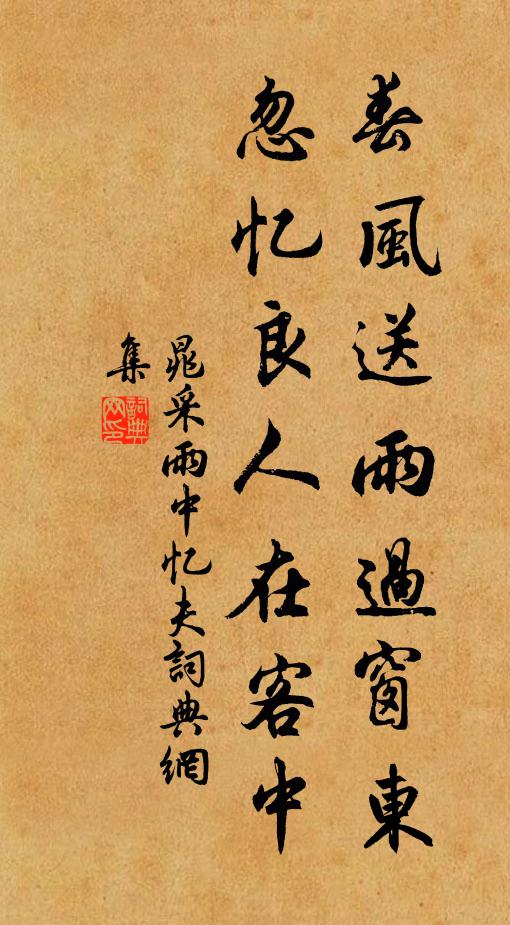 春風送雨過窗東
忽忆良人在客中
晁采雨中忆夫詞典網
集
詞典
网印